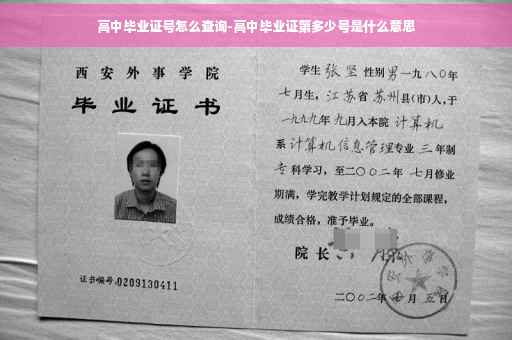 高中毕业证号怎么查询-高中毕业证第多少号是什么意思
西安外事学院
毕业证书
证书编号:0209130411
学生 张坚 性别男 一九八〇年
七月生,江苏省 苏州县(市)人,于
一九九九年九月入本院 计算机
系 计算机信息管理专业 三 年制
专科学习,至二〇〇二年 七月修业
期满,学完教学计划规定的全部课程,
成绩合格,准予毕业。
院长
二〇〇二年 月 五日